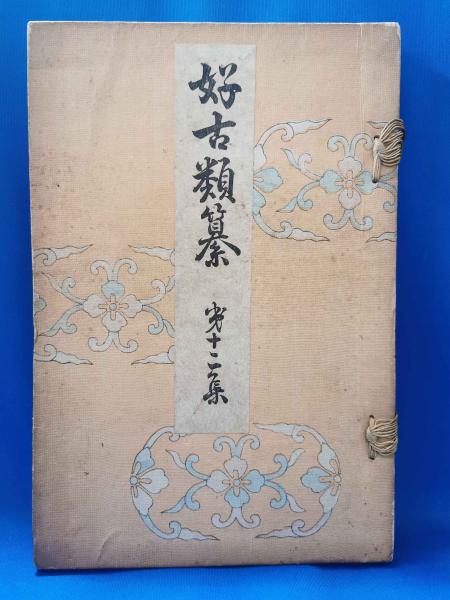 好古類纂 第十二集